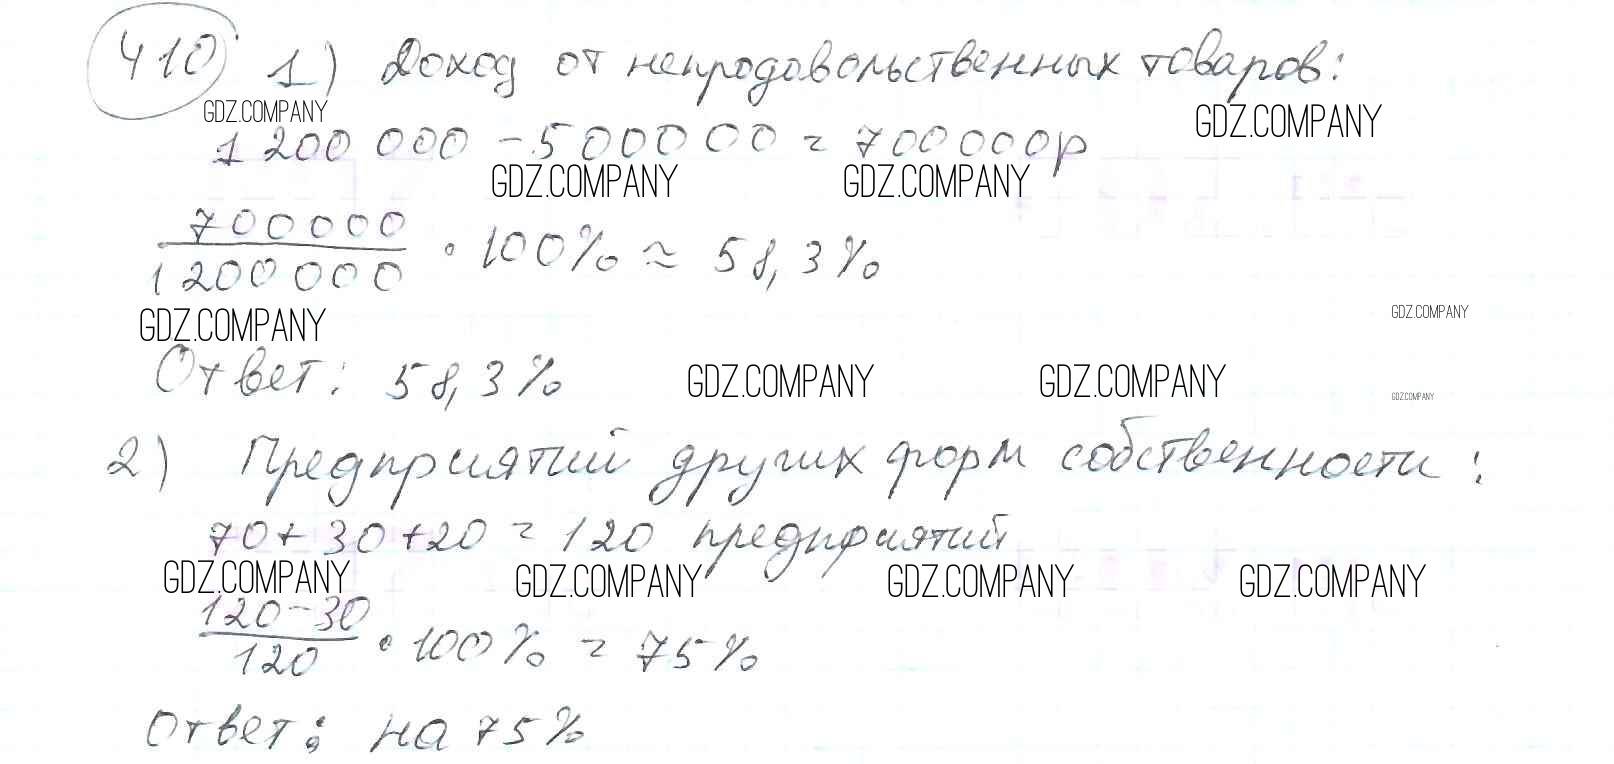 410 1) Доход от непродовольственных товаров:
GDZ.COMPANY GDZ.COMPANY
1 200 000 - 500000 = 700 000р
GDZ.COMPANY GDZ.COMPANY
700000
1 200 000 · 100% ≈ 58,3%
GDZ.COMPANY GDZ.COMPANY
Ответ: 58,3%
GDZ.COMPANY GDZ.COMPANY GDZ.COMPANY
2) Предприятий других форм собственности:
70 + 30 + 20 = 120 предприятий
GDZ.COMPANY GDZ.COMPANY GDZ.COMPANY GDZ.COMPANY
120 - 30
120 · 100% = 75%
Ответ: на 75%